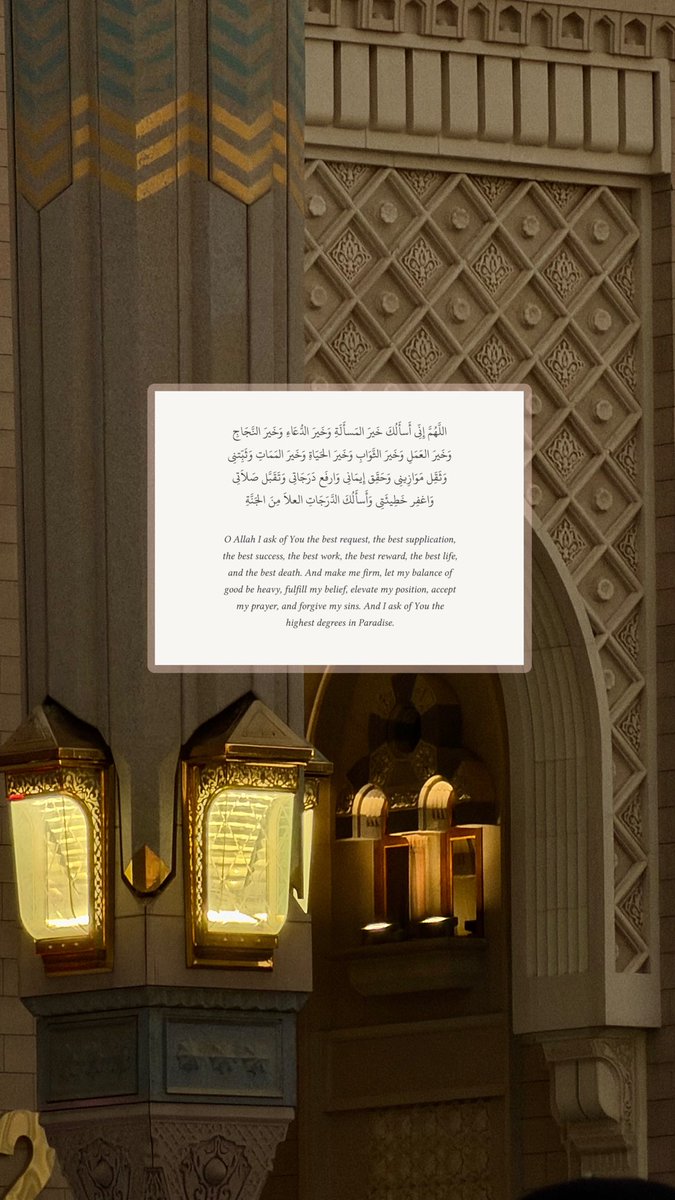 اللَّهُمَّ إِنِّى أَسأَلُكَ خَيرَ المَسأَلَةِ وَخَيرَ الدُّعَاءِ وَخَيرَ النَّجَاحِ
وَخَيرَ العَمَلِ وَخَيرَ الثَّوَابِ وَخَيرَ الحَيَاةِ وَخَيرَ المَمَاتِ وَثَبِّتنِى
وَثَقِل مَوَازِينِى وَحَقِق إِيمَانِى وَارفَع دَرَجَاتِى وَتَقَبَّل صَلَاتِى
وَاغفِر خَطِيئَتِى وَأَسأَلُكَ الدَّرَجَاتِ العلاَ مِنَ الجَنَّةِ
O Allah I ask of You the best request, the best supplication,
the best success, the best work, the best reward, the best life,
and the best death. And make me firm, let my balance of
good be heavy, fulfill my belief, elevate my position, accept
my prayer, and forgive my sins. And I ask of You the
highest degrees in Paradise.
2